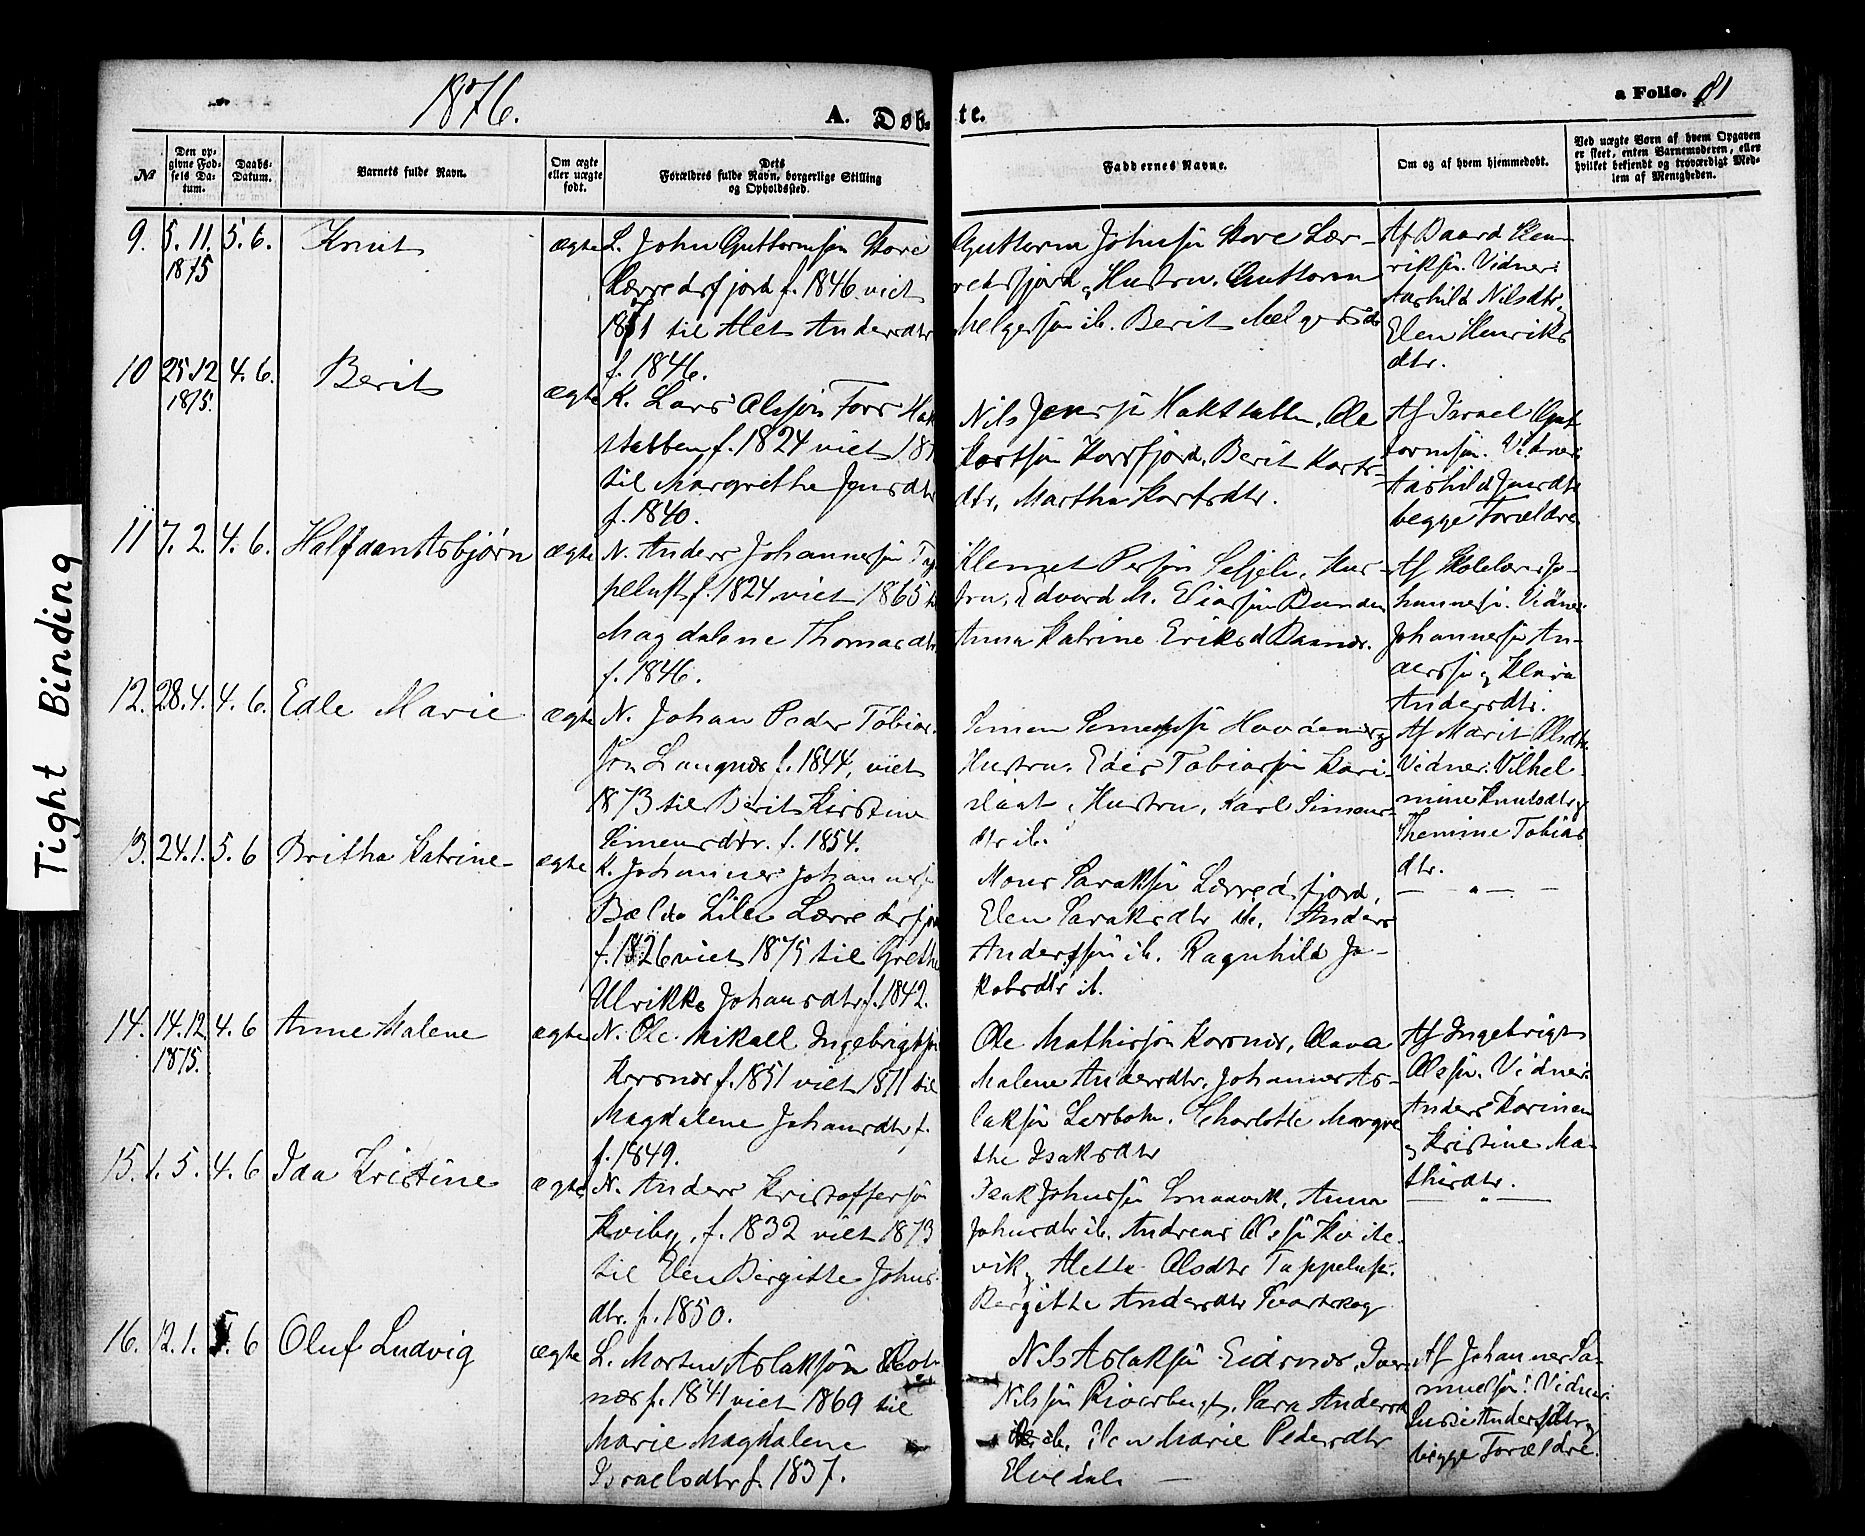 1876.
A. Døb- te.
a Folio. 81
№
Den op-
givne Fød-
sels Da-
tum.
Daabs-
Datum.
Barnets fulde Navn.
Om ægte
eller uægte
født.
Dets
Forældres fulde Navn, borgerlige Stilling
og Opholdssted.
Faddernes Navne.
Om og af hvem hjemmedøbt.
Ved uægte Børn af hvem Opgaven
er skeet, enten Barnemoderen, eller
hvilket bekjendt og troværdigt Med-
lem af Menigheden.
9. 5. 11. 1875 5. 6. Knut ægte
L. John Guttormsøn Store
Lærredsfjord f. 1846 viet
1871 til Alet Andersdtr
f. 1846.
Guttorm Johnsøn Store Lær-
redsfjord, Hustru. Guttorm
Helgesøn ib. Berit
Af Baard Hen-
riksøn. Vidner:
Aashild Nilsdtr,
Elen Henriks
dtr.
10 25 12 1875. 4. 6. Berit ægte
K. Lars Olssøn Fors Hak
stabben f. 1824 viet 187
til Margrethe Jensdtr
f. 1840.
Nils Jenssøn Hakstabben, Ole
Kortsøn Korsfjord, Berit Korts-
dtr, Martha Kortsdtr.
Af Israel Gut
tormsøn. Vidner:
Aashild Jensdtr
begge Forældre
11 7. 2. 4. 6. Halfdan Asbjørn ægte
N. Anders Johannessøn Tap
peluft f. 1824 viet 1865 til
Magdalene Thomasdtr
f. 1846.
Klemet Persøn Seljeli, Hus-
tru, Edvard M. Eliassøn
Anna Katrine Eriksd
Af Skolelærer Jo-
hannessøn. Vidner:
Johannes An-
derssøn og Klara
Andersdtr.
12. 28. 4. 4. 6. Edle Marie ægte
N. Johan Peder Tobias-
søn Langnæs f. 1844, viet
1873 til Berit Kirstine
Simensdtr. f. 1854.
Simen Simenssøn
Hustru. Edis Tobiassøn
Hustru, Karl Simens-
dtr ib.
Af Marit Olsdtr.
Vidner: Vilhel-
mine Knutsdtr og
Themine Tobias
dtr.
13. 24. 1. 5. 6 Britha Katrine ægte
K. Johannes Johannessøn
Bælde Lille Lærredsfjord
f. 1826 viet 1875 til Grethe
Ulrikke Johansdtr f. 1842.
Mons Saraksøn Lærredsfjord,
Elen Saraksdtr ib. Anders
Anderssøn ib. Ragnhild Ja-
kobsdtr ib.
— " —
14. 14. 12. 1875. 4. 6 Anne Malene ægte
N. Ole Mikael Ingebrigtsøn
Korsnæs f. 1851 viet 1871 til
Magdalene Johansdtr f.
f. 1849.
Ole Mathissøn Korsnæs, Olava
Malene Andersdtr, Johannes As-
laksøn Lerbotn. Charlotte Margre
the Isaksdtr
Af Ingebrigt
Olssøn. Vidner:
Anders Karinen
og Kristine Ma-
thisdtr.
15. 1. 5. 4. 6 Ida Kristine ægte
N. Anders Kristoffersøn
Kviby, f. 1832 viet 1873
til Elen Birgitte Johns-
dtr. f. 1850.
Isak Johnsøn Smaavik, Anna
Johnsdtr ib. Andreas Olssøn
vik, Alette Olsdtr Tappeluft.
Birgitte Andersdtr Svartskog
— " —
16. 12. 1. 5. 6 Oluf Ludvig ægte
L. Morten Aslaksøn
næs f. 1841 viet 1869 til
Marie Magdalene
Israelsdtr f. 1837.
Nils Aslaksøn Eidsnæs, Iver
Nilssøn Sara Andersd
ib. Elen Marie Pedersdtr
Elvedal. —
Af Johannes Sa-
muelsøn. Vidner:
Andersdtr og
begge Forældre.
Tight Binding